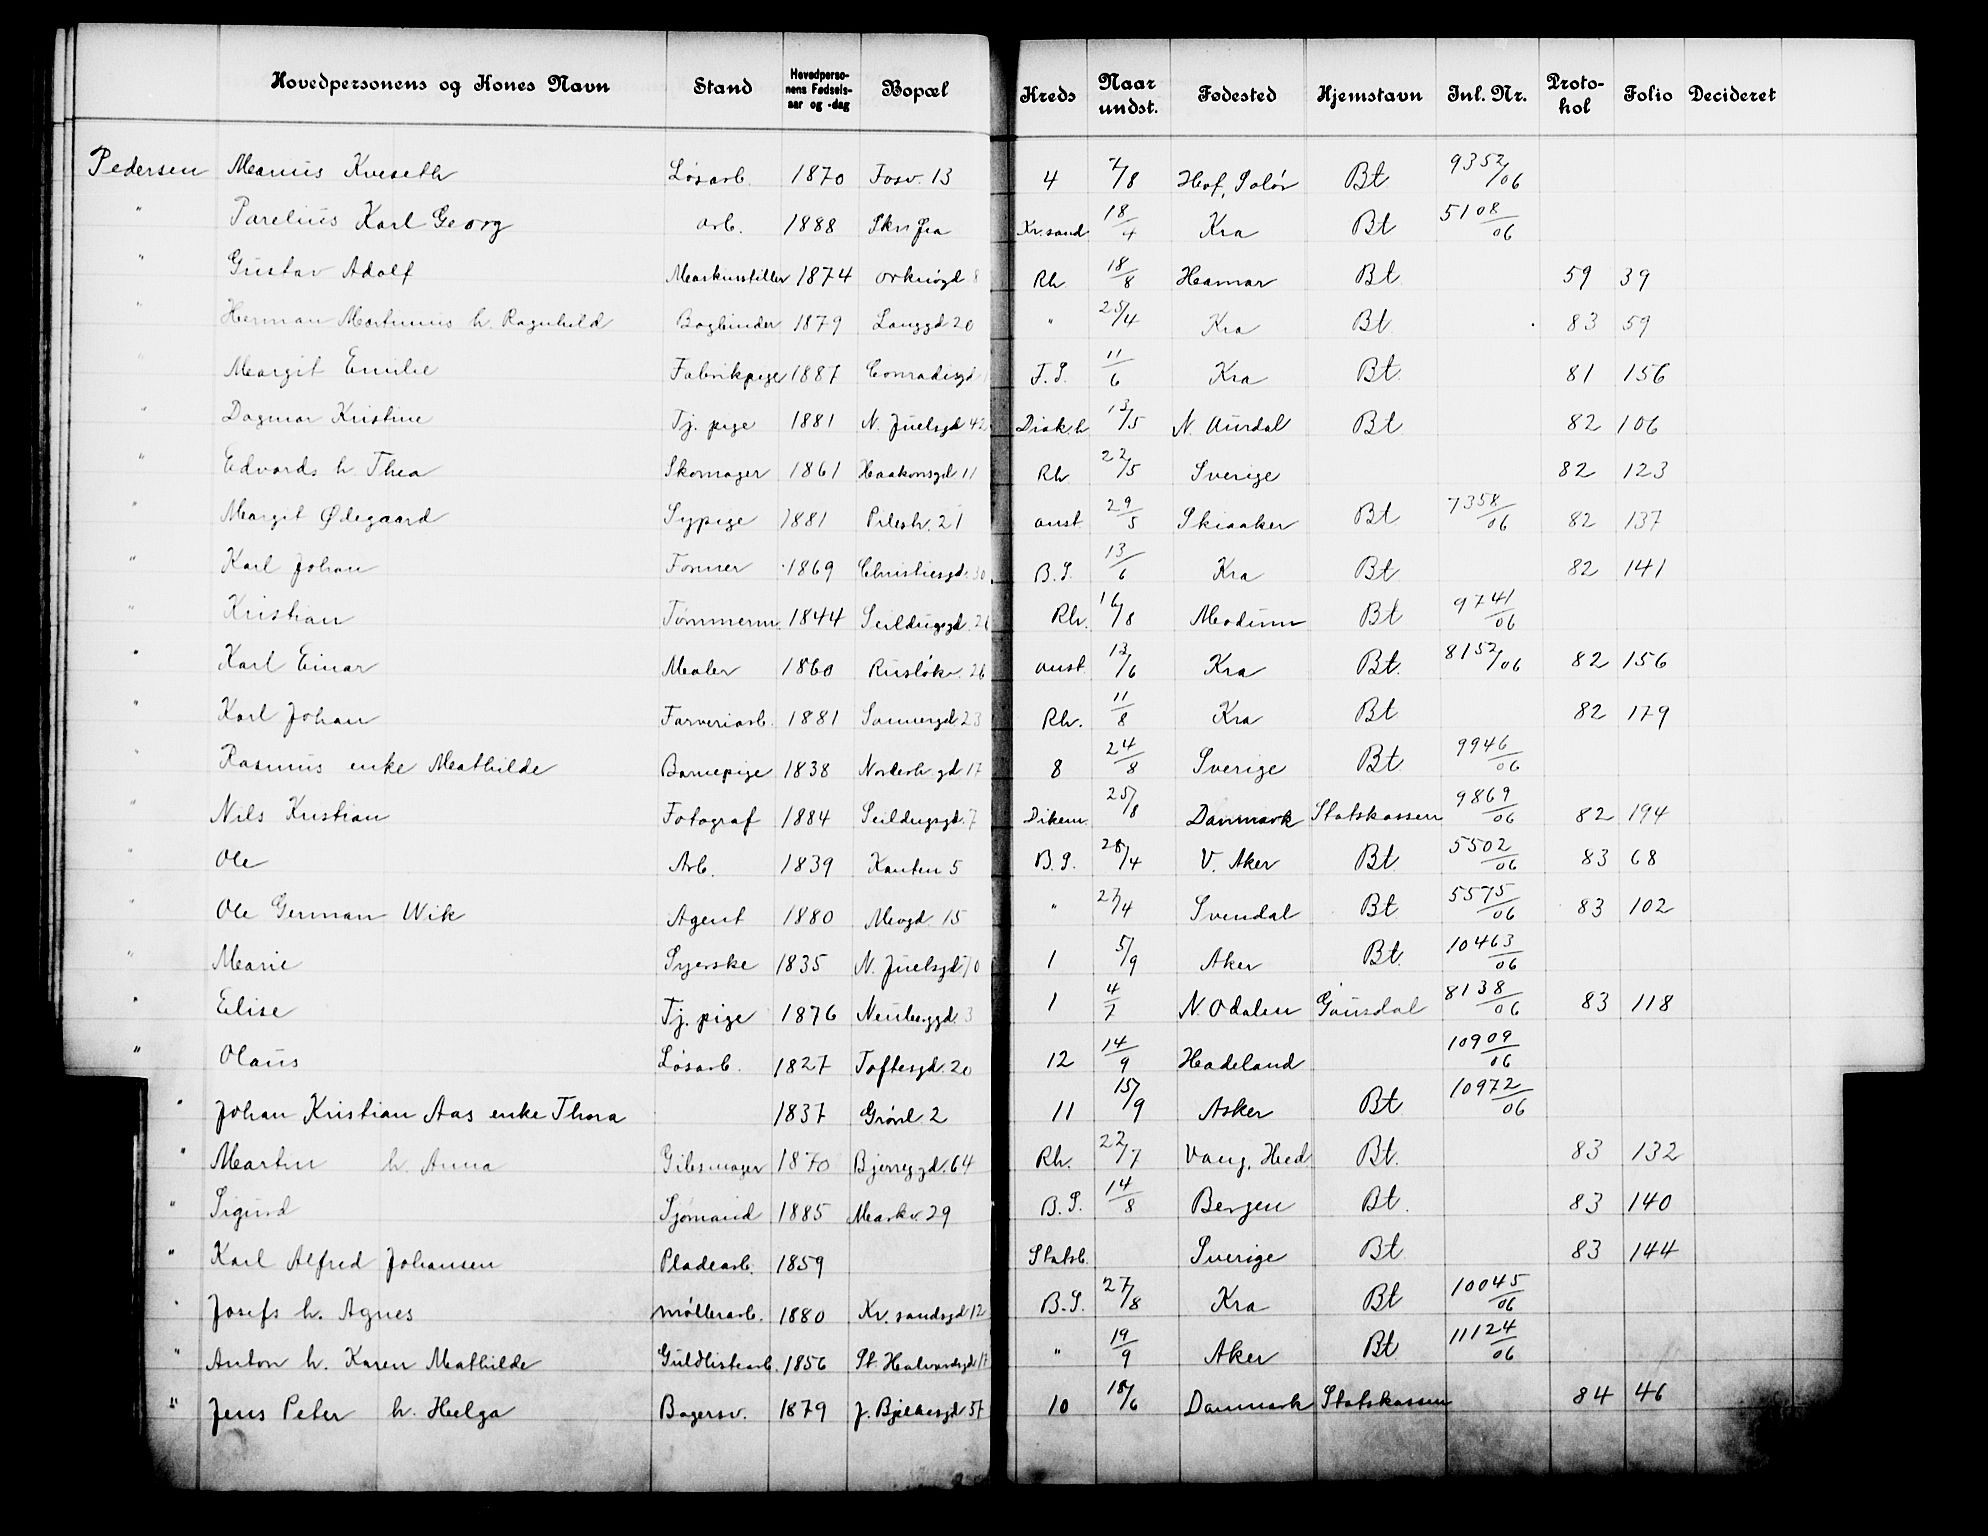 Hovedpersonens og Kones Navn Stand Hovedpersonens Fødselsaar og -dag Bopæl Kreds Naar undst. Fødested Hjemstavn Inl. Nr. Protokol Folio Decideret
Pedersen Marius Kveseth Løsarb. 1870 Fosv. 13 4 7/8 Hof, Solør Bt 9352/06
" Parelius Karl Georg arb. 1888 Kr.sand 18/4 Kra Bt 5108/06
" Gustav Adolf Maskinstiller 1874 8 Rh 18/8 Hamar Bt 59 39
" Herman Martinius h. Ragnhild Bogbinder 1879 Langgd 20 " 25/4 Kra Bt. 83 59
" Margit Emilie Fabrikpige 1887 Conradisgd F.S. 11/6 Kra Bt 81 156
" Dagmar Kristine Tj. pige 1881 N. Juelsgd 42 Diak.h 13/5 N. Aurdal Bt 82 106
" Edvards h. Thea Skomager 1861 Haakonsgd 11 Rh 22/5 Sverige 82 123
" Margit Ødegaard Sypige 1881 Pilestr. 21 anst. 29/5 Skiaaker Bt 7358/06 82 137
" Karl Johan Former 1869 Christiesgd. 30 B.S. 13/6 Kra Bt 82 141
" Kristian Tømmerm. 1844 Seildugsgd. 26 Rh. 16/8 Modum Bt 9741/06
" Karl Einar Maler 1860 Rusløkv. 26 anst. 13/6 Kra Bt. 8152/06 82 156
" Karl Johan Farveriarb. 1881 Sannergd 23 Rh. 11/8 Kra Bt 82 179
" Rasmus enke Mathilde Barnepige 1838 Nordstr.gd 17 8 24/8 Sverige Bt. 9946/06
" Nils Kristian Fotograf 1884 Seildugsgd. 7 Dikem. 25/8 Danmark Statskassen 9869/06 82 194
" Ole Arb. 1839 Kanten 5 B.S. 28/4 V. Aker Bt 5502/06 83 68
" Ole German Wik Agent 1880 Meogd. 15 " 27/4 Svendal Bt 5575/06 83 102
" Marie Syerske 1835 N. Juelsgd 70 1 5/9 Aker Bt. 10463/06
" Elise Tj. pige 1876 Neuberggd. 3 1 4/7 N. Odalen Gausdal 8138/06 83 118
" Olaus Løsarb. 1827 Toftesgd. 20 12 14/9 Hadeland 10909/06
" Johan Kristian Aas enke Thora 1837 Grønl. 2 11 15/9 Asker Bt. 10972/06
" Martin h. Anna Gibsmager 1870 Bjerregd. 64 Rh. 22/7 Vang, Hed Bt. 83 132
" Sigurd Sjømand 1885 Markv. 29 B.S. 14/8 Bergen Bt. 83 140
" Karl Alfred Johansen Pladearb. 1859 Statsb. Sverige Bt 83 144
" Josefs h. Agnes Møllerarb. 1880 Kr.sandsgd 12 B.S. 27/8 Kra Bt 10045/06
" Anton h. Karen Mathilde Guldlistearb. 1856 St Halvardsgd 17 " 19/9 Aker Bt 11124/06
" Jens Peter h. Helga Bagersv. 1879 J. Bjelkesgd 57 10 18/6 Danmark Statskassen 84 46